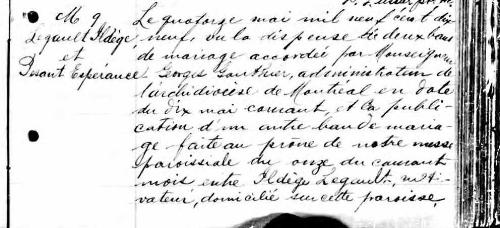 M 9
Legault Ildège
et
Desant Espérance
Le quatorze mai mil neuf cent dix
neuf, vu la dispense de deux bans
de mariage accordée par Monseigneur
Georges Gauthier, administrateur de
l'archidiocèse de Montréal en date
du dix mai courant et la publi-
cation d'un autre ban de maria-
ge faite au prône de notre messe
paroissiale du onze du courant
mois entre Ildège Legault, culti-
vateur, domicilié sur cette paroisse,